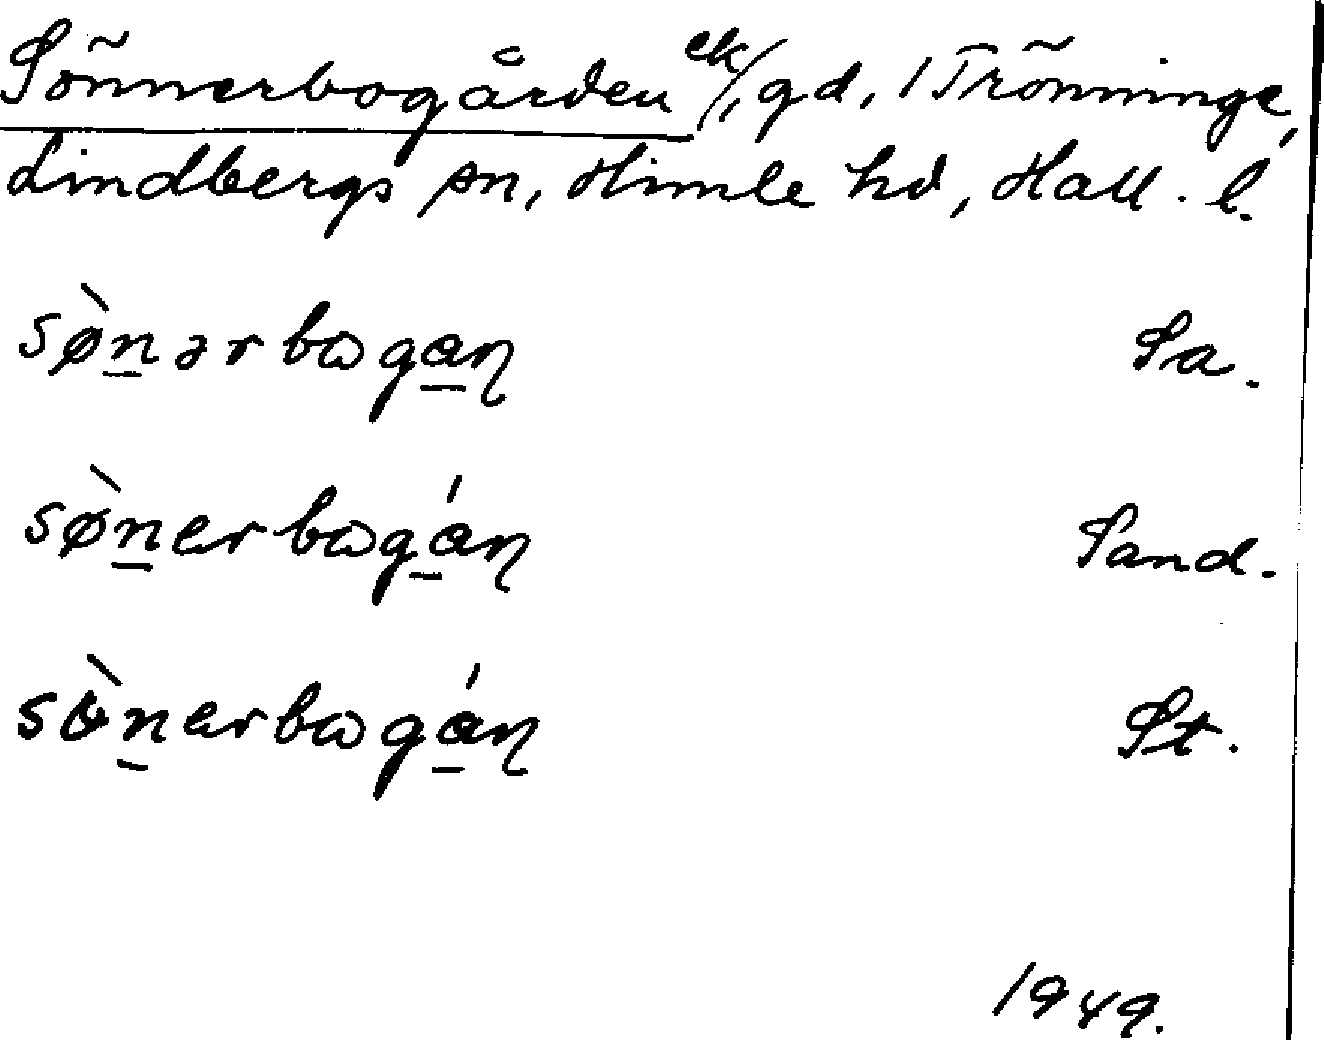 Sönnerbogården ek/, gd, 1 Trönninge,
Lindbergs sn, Himle hd, Hall. l.
sø̀n̲ərbɷga̲ɳ Sa.
sø̀n̲erbɷgá̲ɳ Sand.
sø̀n̲erbɷgá̲ɳ St.
1949.